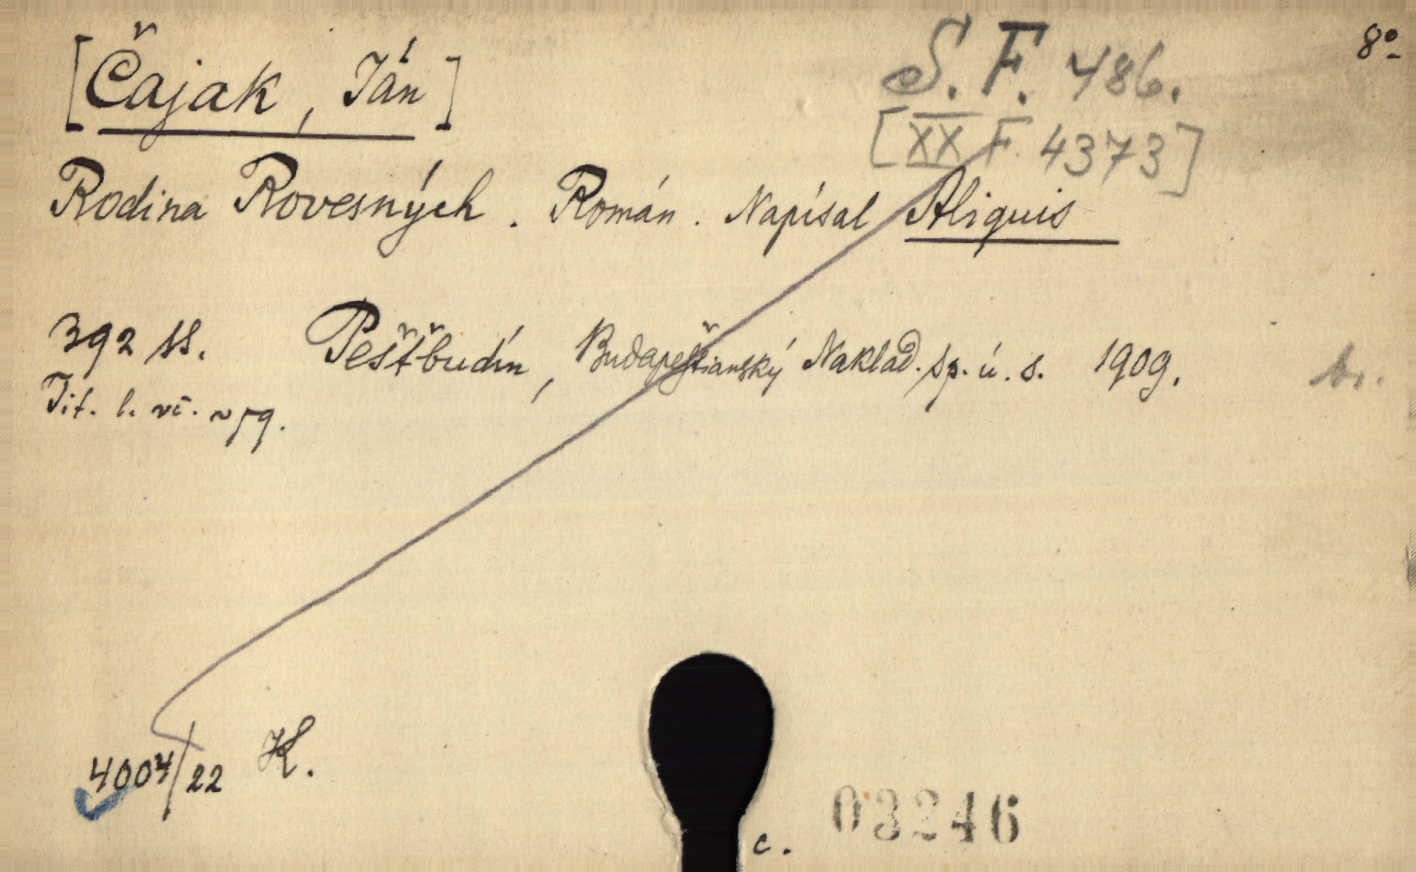 8º
[Čajak, Ján]
S. F. 486.
[XX F. 4373]
Rodina Rovesných. Román. Napísal Aliquis
392 ss. Pešťbudín, Budapeštianský Naklad. sp. ú. s. 1909.
br.
Tit. l.
4004/22 K.
c. 03246